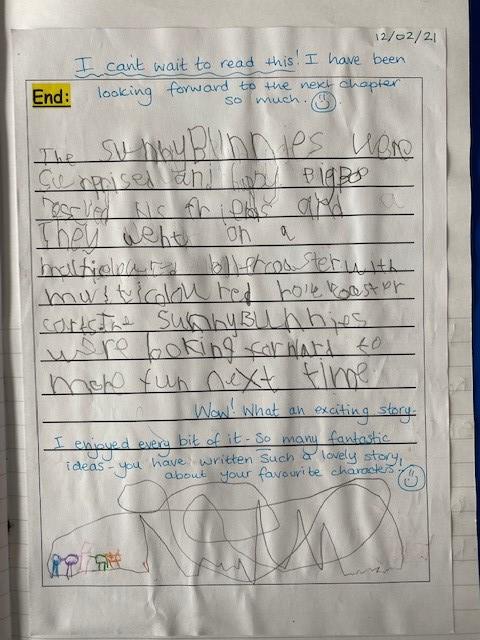 12/02/21
I can't wait to read this! I have been
looking forward to the next chapter
so much.
End:
The sunnyBunnies were
and Big Boo
rescued his friends and a
They went on a
with
rollercoaster
carts The SunnyBunnies
were looking forward to
more fun next time.
Wow! What an exciting story-
I enjoyed every bit of it - So many fantastic
ideas - you have written such a lovely story,
about your favourite characters.